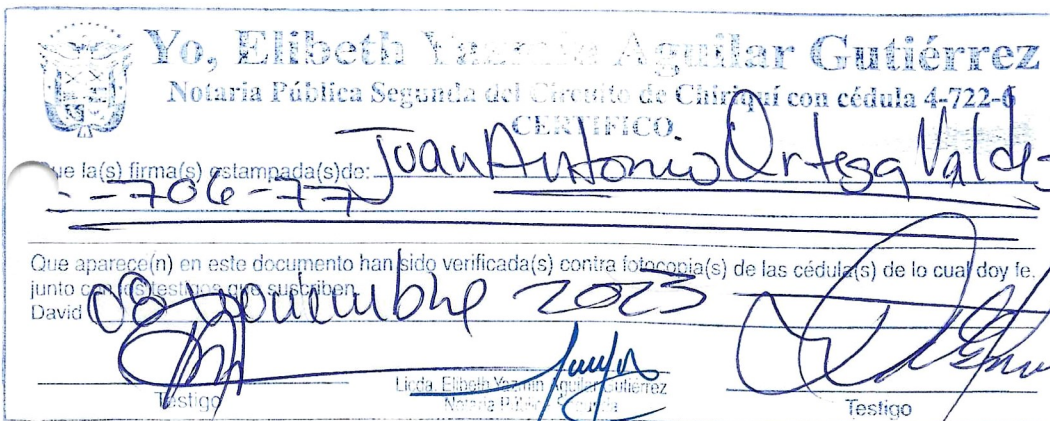 Yo, Elibeth Yazmin Aguilar Gutiérrez
Notaria Pública Segunda del Circuito de Chiriquí con cédula 4-722-6
CERTIFICO
que la(s) firma(s) estampada(s) de: Juan Antonio Ortega Valde
-706-77
Que aparece(n) en este documento han sido verificada(s) contra fotocopia(s) de las cédula(s) de lo cual doy fe.
junto con los testigos que suscriben
David 08 noviembre 2023
Licda. Elibeth Yazmin Aguilar Gutiérrez
Testigo Notaria Pública Segunda Testigo